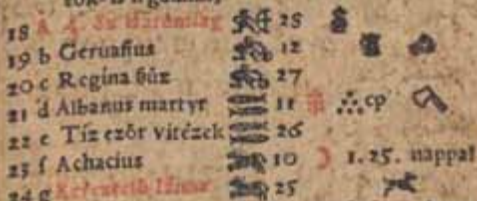 18 A 4. Sz Háromság 28
19 b Geruasius 12
20 c Regina ſûz 27
21 d Albanus martyr 11 cp
22 e Tíz ezôr vitézek 26
23 f Achacius 10 1.25. nappal
24 g 25